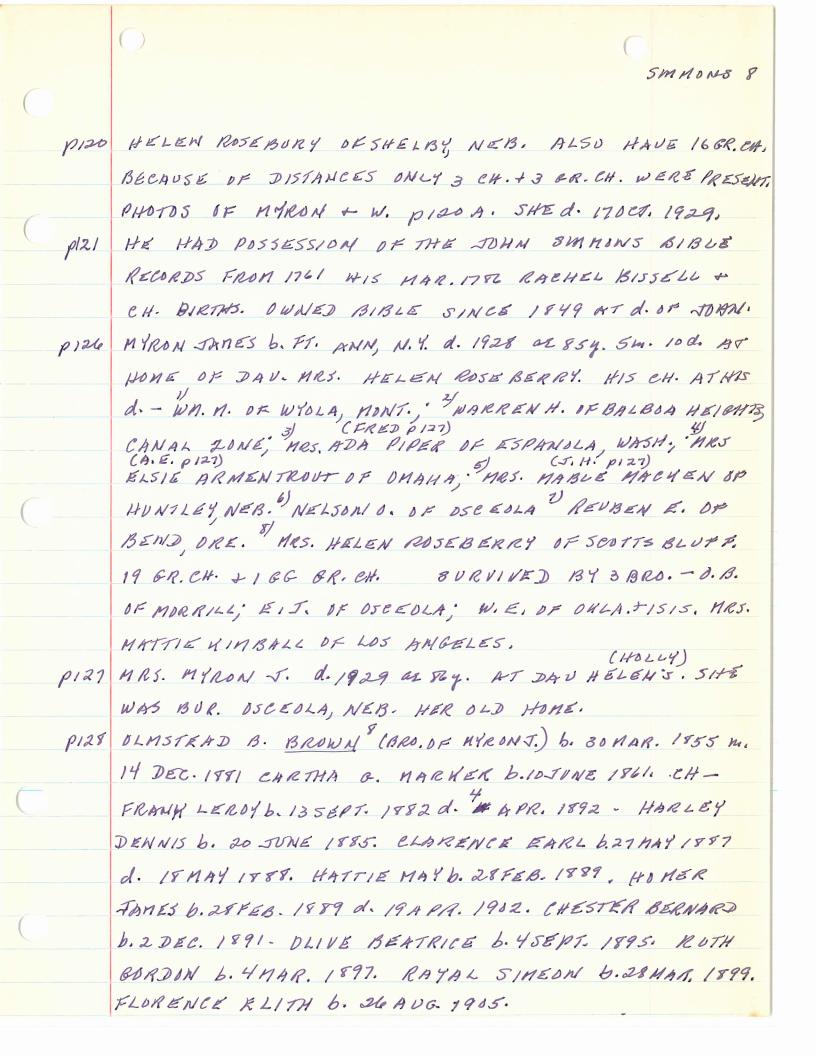 SMMONS 8
p120 HELEN ROSEBURY OF SHELBY, NEB. ALSO HAVE 16 GR. CH.
BECAUSE OF DISTANCES ONLY 3 CH. + 3 GR. CH. WERE PRESENT.
PHOTOS OF MYRON + W. p120A. SHE d. 17 OCT. 1929.
p121 HE HAD POSSESSION OF THE JOHN SIMMONS BIBLE
RECORDS FROM 1761 HIS MAR. 1786 RACHEL BISSELL +
CH. BIRTHS. OWNED BIBLE SINCE 1849 AT d. OF JOHN.
p126 MYRON JAMES b. FT. ANN, N.Y. d. 1928 ae 85y. 5m. 10d. AT
HOME OF DAU. MRS. HELEN ROSEBERRY. HIS CH. AT HIS
d. – 1) WM. M. OF WYOLA, MONT.; 2) WARREN H. OF BALBOA HEIGHTS,
(FRED p127)
CANAL ZONE; 3) MRS. ADA PIPER OF ESPANOLA, WASH.; 4) MRS
(A.E. p127) (J.H. p127)
ELSIE ARMENTROUT OF OMAHA; 5) MRS. MABLE MACKEN OF
HUNTLEY, NEB. 6) NELSON O. OF OSCEOLA 7) REUBEN E. OF
BEND, ORE. 8) MRS. HELEN ROSEBERRY OF SCOTTS BLUFF.
19 GR. CH. + 1 GG GR. CH. SURVIVED BY 3 BRO. – O.B.
OF MORRILL; E.J. OF OSCEOLA; W.E. OF OKLA. + 1 SIS. MRS.
MATTIE KIMBALL OF LOS ANGELES.
(HOLLY)
p127 MRS. MYRON J. d. 1929 ae 86y. AT DAU HELEN'S. SHE
WAS BUR. OSCEOLA, NEB. HER OLD HOME.
p128 OLMSTEAD B. BROWN 8 (BRO. OF MYRON J.) b. 30 MAR. 1855 m.
14 DEC. 1881 CARTHA G. MARKER b. 10 JUNE 1861. CH –
FRANK LEROY b. 13 SEPT. 1882 d. 4 APR. 1892 - HARLEY
DENNIS b. 20 JUNE 1885. CLARENCE EARL b. 27 MAY 1887
d. 18 MAY 1888. HATTIE MAY b. 28 FEB. 1889. HOMER
JAMES b. 28 FEB. 1889 d. 19 APR. 1902. CHESTER BERNARD
b. 2 DEC. 1891 - OLIVE BEATRICE b. 4 SEPT. 1895. RUTH
GORDON b. 4 MAR. 1897. RAYAL SIMEON b. 28 MAR. 1899.
FLORENCE ELITH b. 26 AUG 1905.